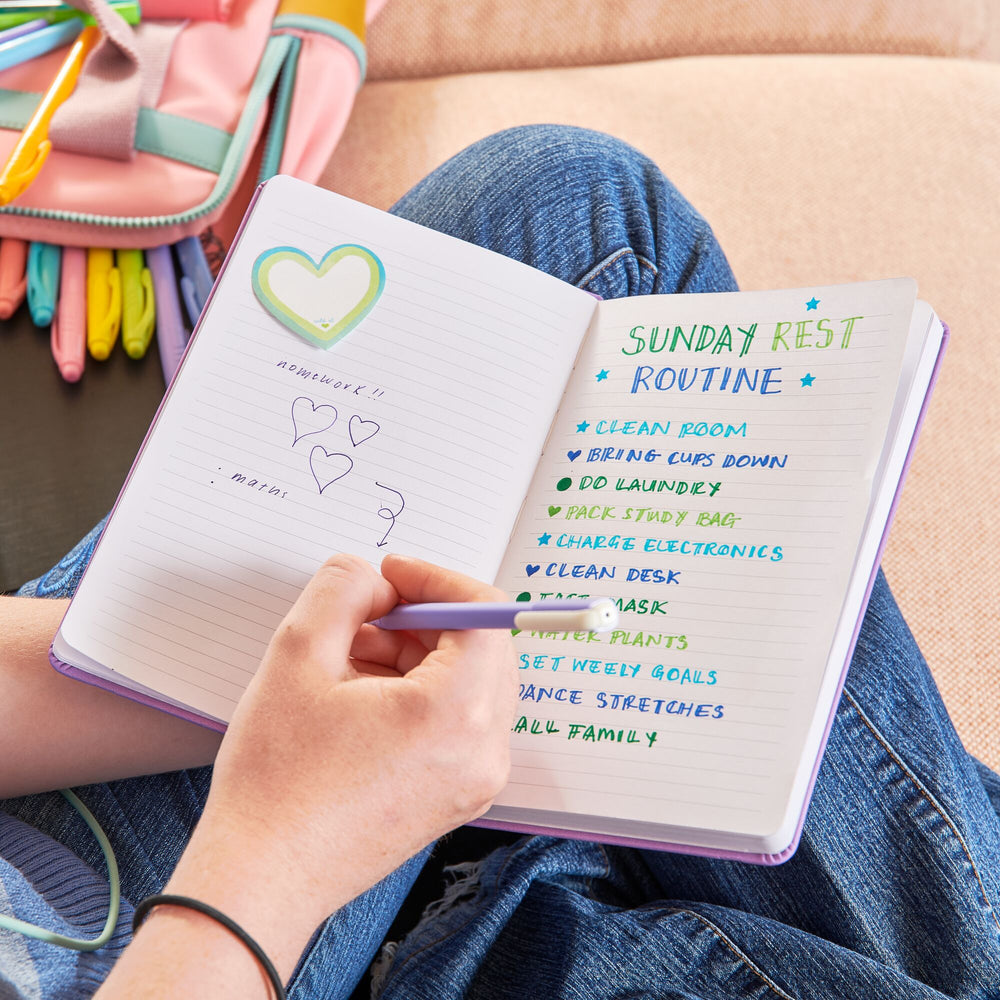 homework!!
: maths
SUNDAY REST
ROUTINE
CLEAN ROOM
BRING CUPS DOWN
DO LAUNDRY
PACK STUDY BAG
CHARGE ELECTRONICS
CLEAN DESK
MASK
WATER PLANTS
SET WEELY GOALS
DANCE STRETCHES
CALL FAMILY